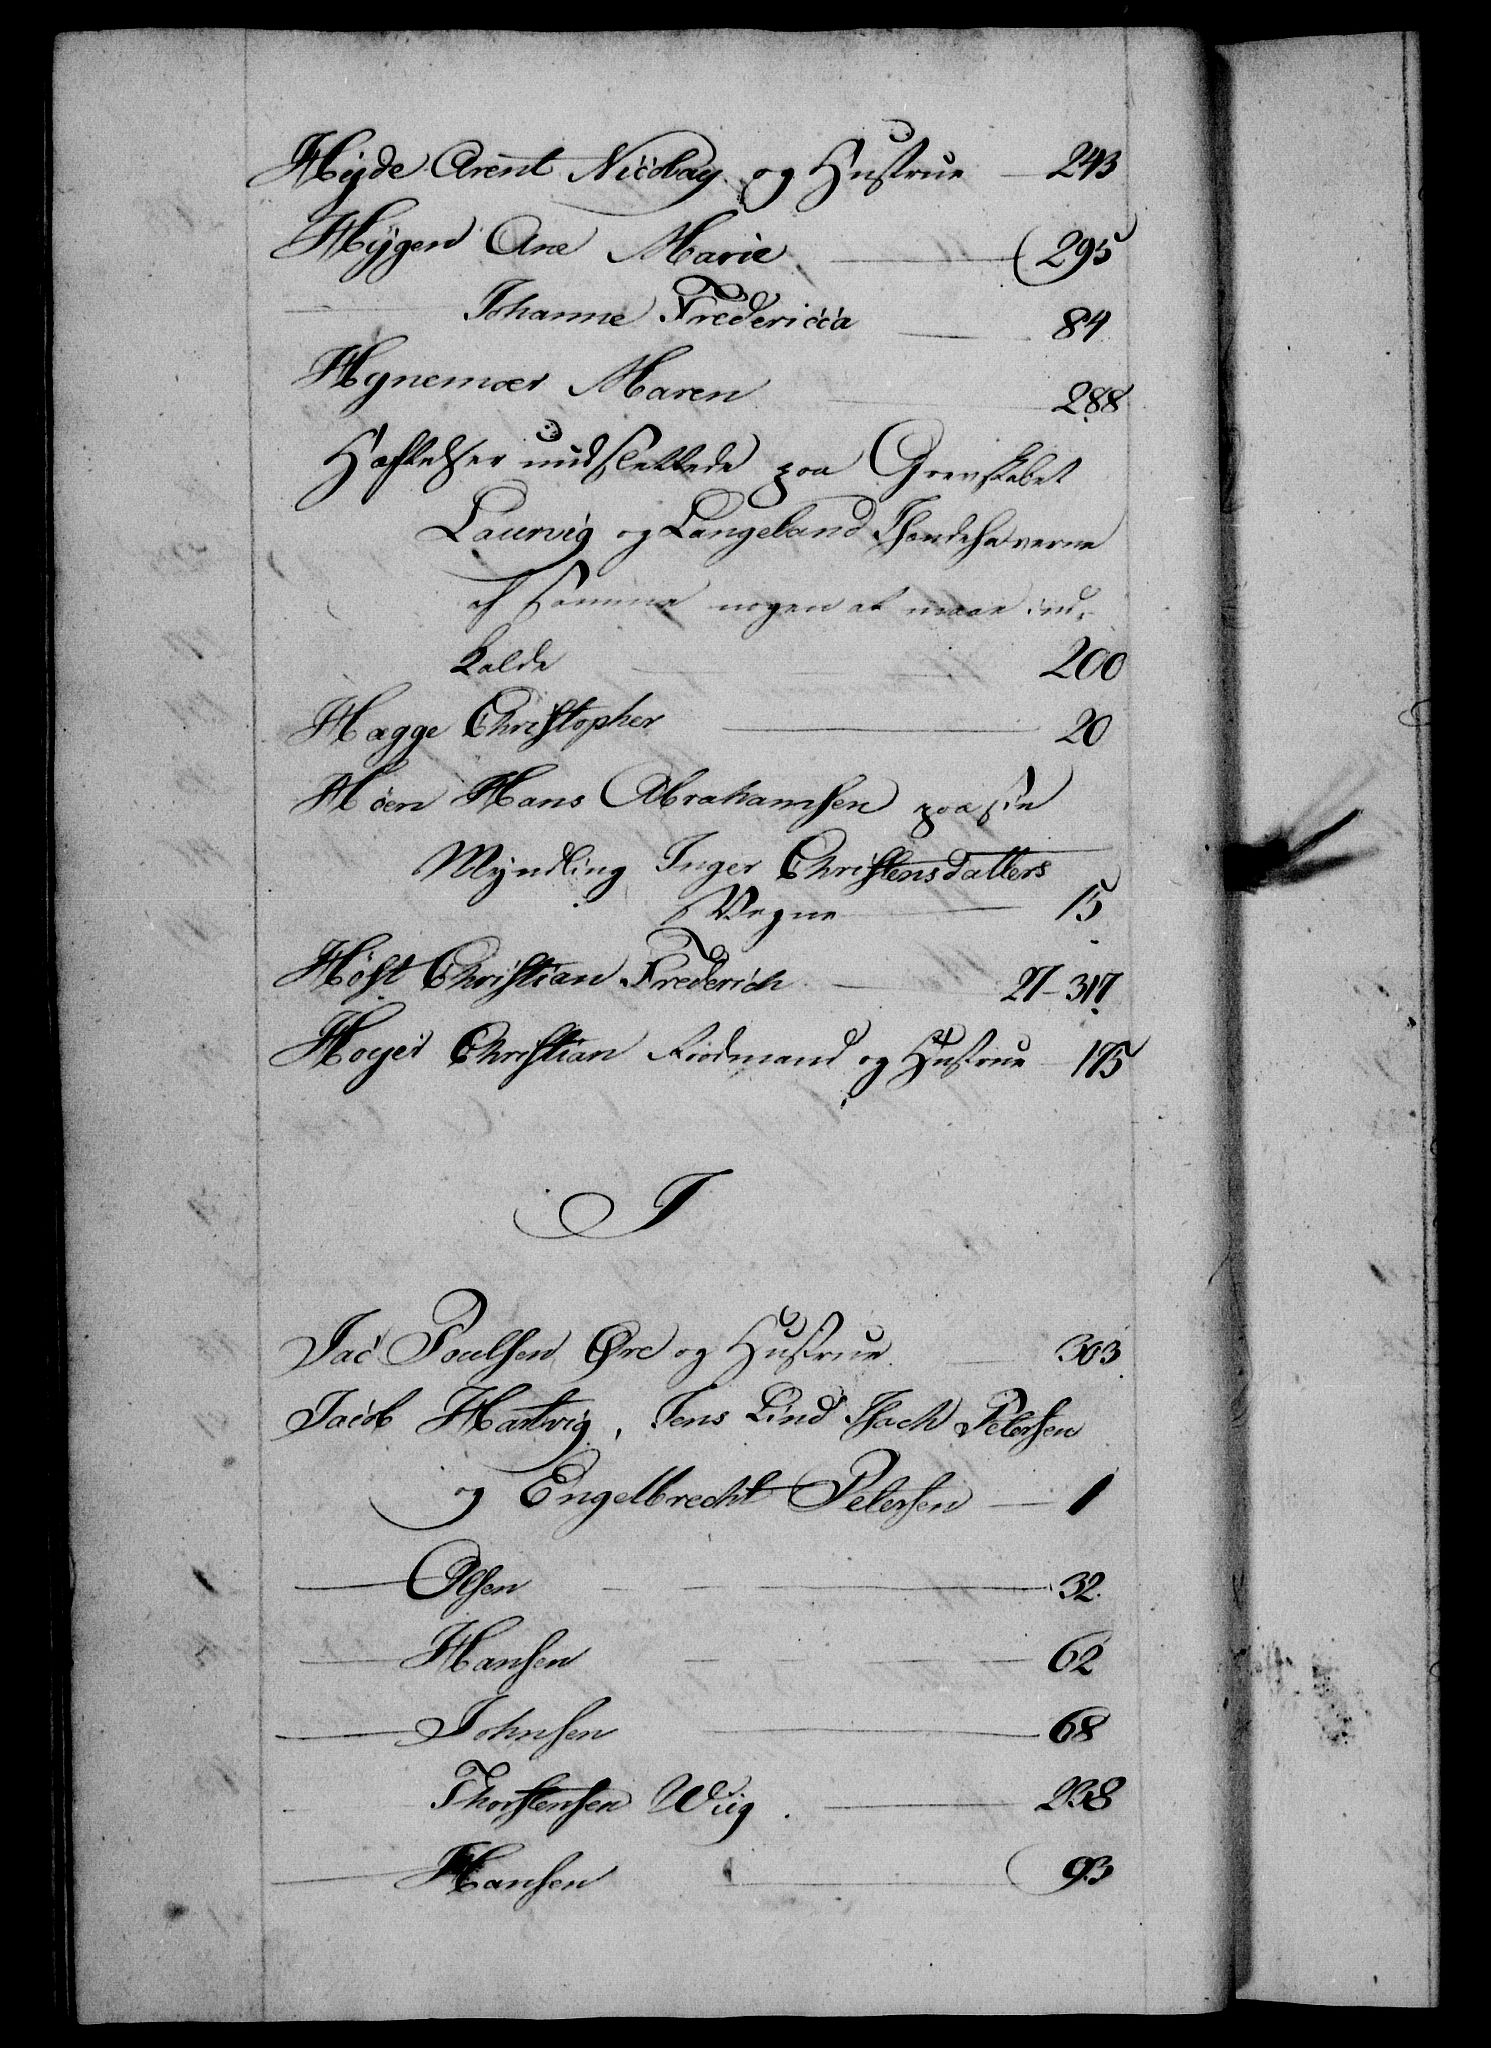 Hyde Arent Nicolay og Hustrue — 243
Hygen Ane Marie — 295
— Johanne Fredericca — 84
Hynemoer Maren — 288
Hæftelser uudslettede paa Grevskabet
Laurvig og Langeland Ihændehaverne
af samme nogen at maae ind-
kalde — 200
Hægge Christopher — 20
Höen Hans Abrahamsen paa sin
Myndling Inger Christensdatters
Vegne — 15
Høst Christian Frederich — 27-317
Høyer Christian Kiødmand og Hustrue — 175
J
Jac Poulsen Øre og Hustrue — 303
Jacob Hartvig, Jens Lind Isach Petersen
og Engelbrecht Petersen — 1
— Olsen — 32
— Hansen — 62
— Johnsen — 68
Thorstensen Wiig — 238
— Hansen — 93